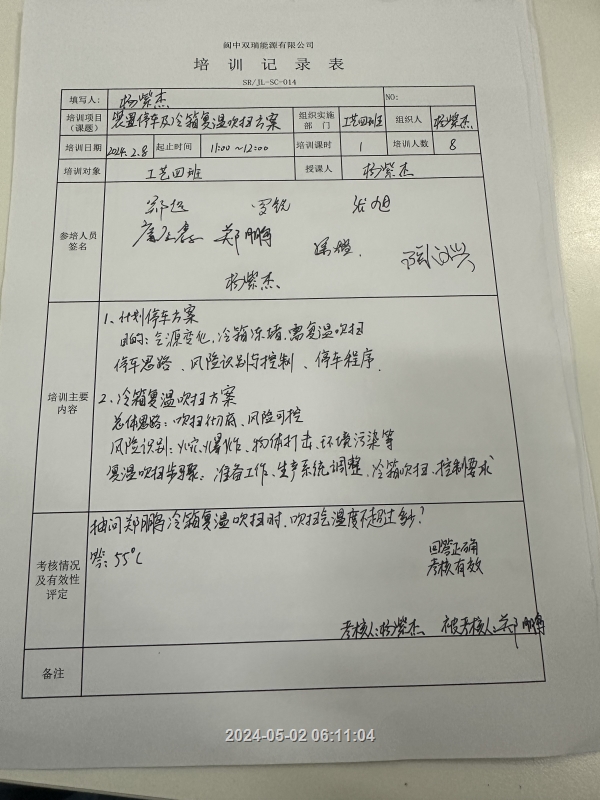 阆中双瑞能源有限公司
培 训 记 录 表
SR/JL-SC-014
填写人: 杨紫杰 NO:
培训项目（课题） 装置停车及冷箱复温吹扫方案 组织实施部门 工艺四班 组织人 杨紫杰
培训日期 2024.2.8 起止时间 11:00~12:00 培训课时 1 培训人数 8
培训对象 工艺四班 授课人 杨紫杰
参培人员签名
郑鹏
杨紫杰
培训主要内容
1、计划停车方案
目的：气源变化、冷箱冻堵，需复温吹扫
停车思路、风险识别与控制、停车程序.
2、冷箱复温吹扫方案
总体思路：吹扫彻底、风险可控
风险识别：火灾、爆炸、物体打击、环境污染等
复温吹扫步骤：准备工作、生产系统调整、冷箱吹扫、控制要求
考核情况及有效性评定
抽问郑鹏冷箱复温吹扫时，吹扫气温度不超过多少？
答：55℃
回答正确
考核有效
考核人：杨紫杰 被考核人：郑鹏
备注
2024-05-02 06:11:04